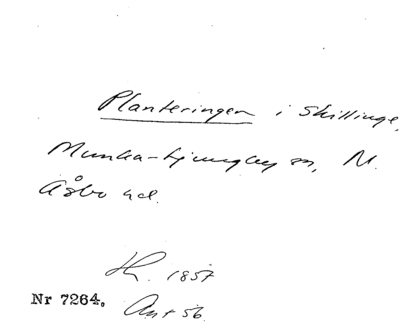 Planteringen i Skillinge,
Munka-Ljungby sn, N.
Åsbo hd.
1857
Nr 7264.